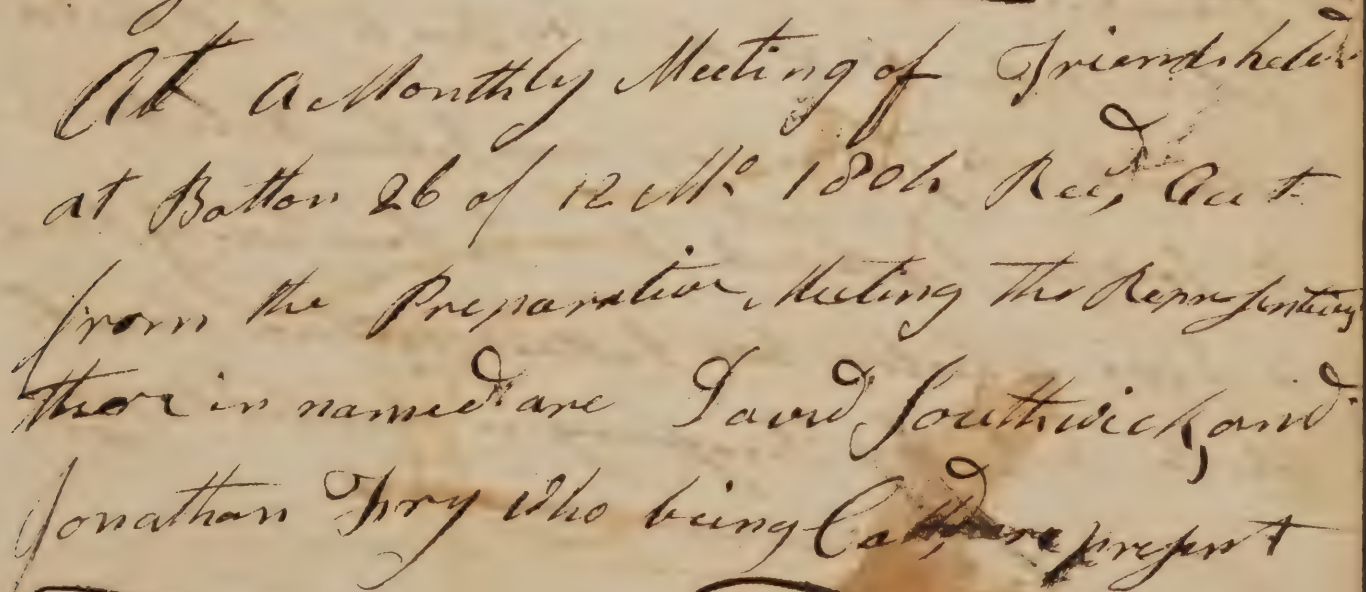 At a Monthly Meeting of Friends held
at Bolton 26 of 12 Mo 1804 Recd, Acct
from the Preparative Meeting the Representives
there in named are David Southwick, and
Jonathan Fry Who being Calld, are present